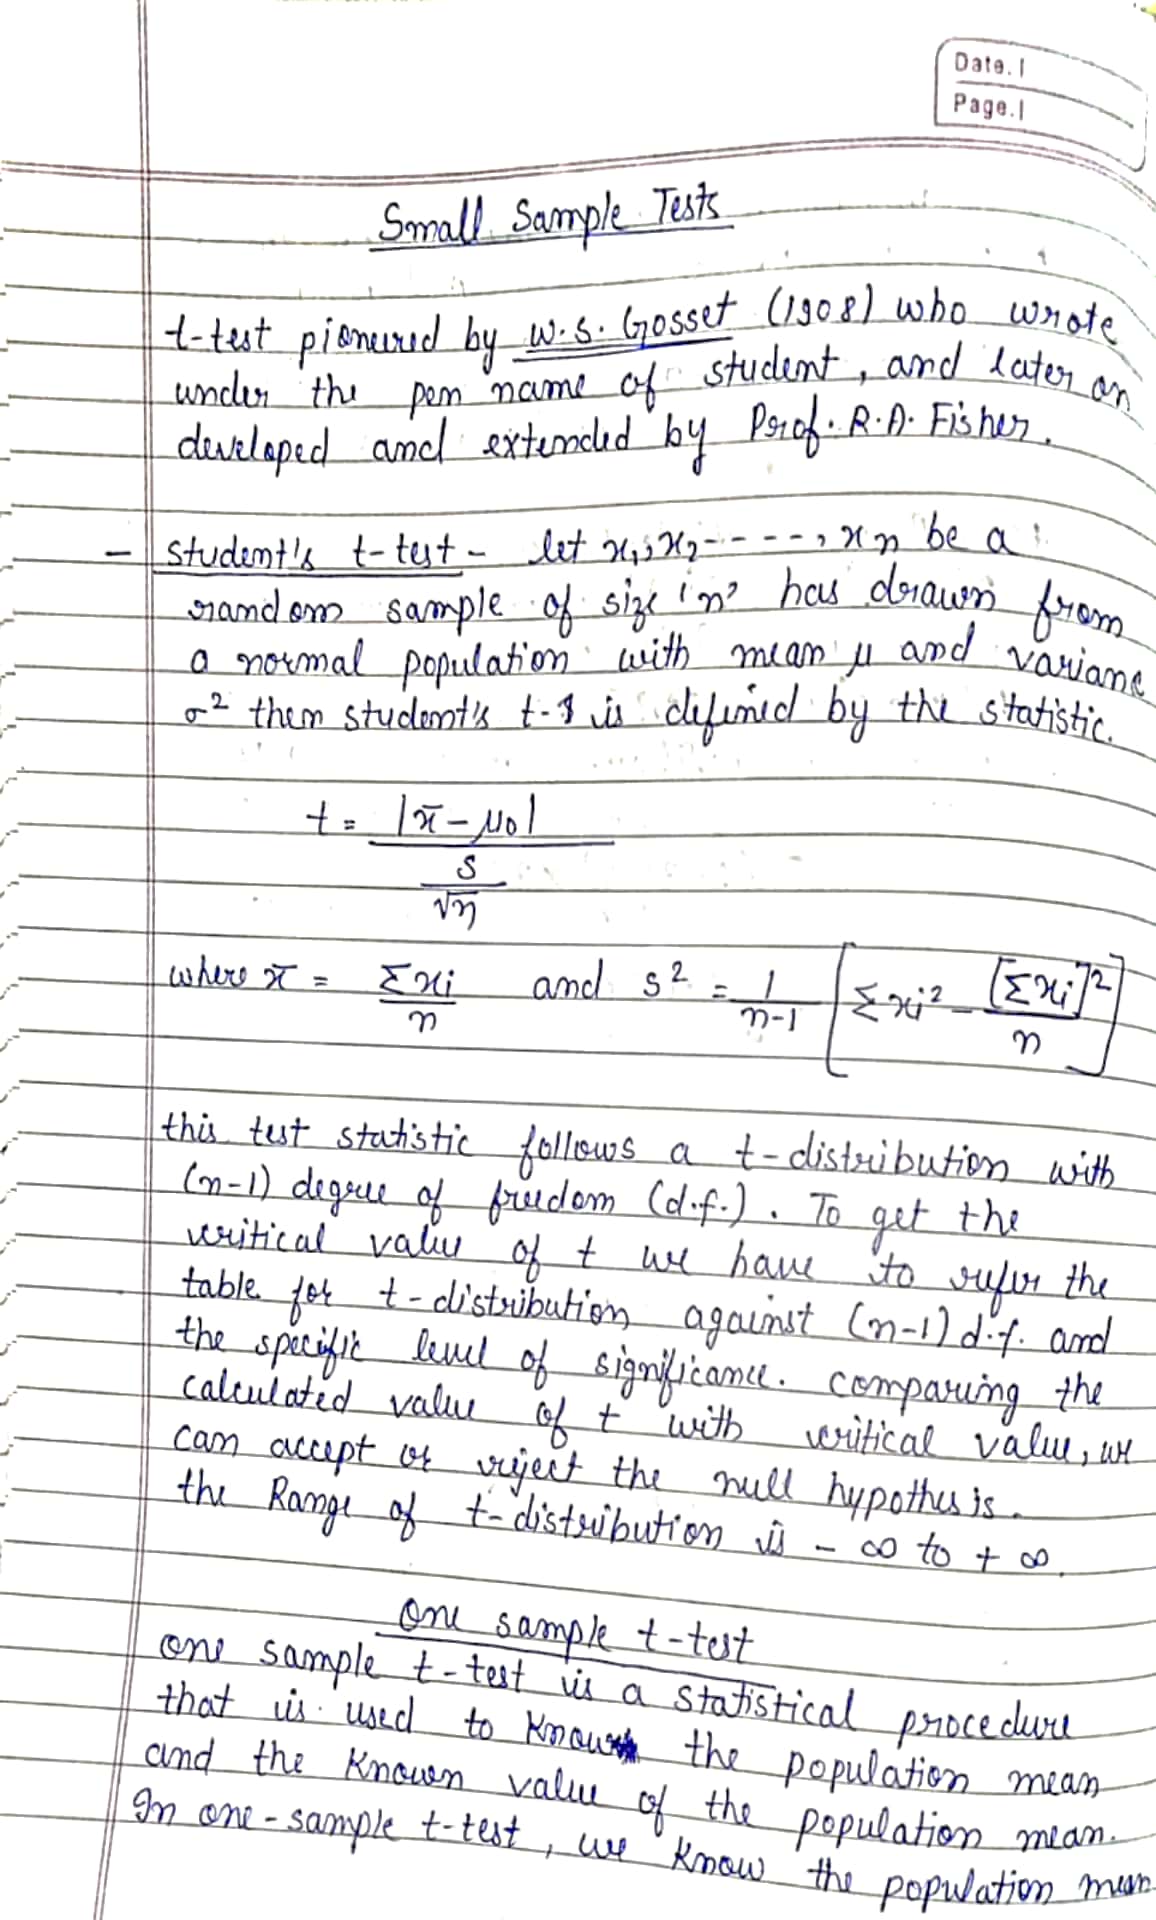 Date.
Page.
Small Sample Tests
t-test pioneered by W.S. Gosset (1908) who wrote
under the pen name of student, and later on
developed and extended by Prof. R.A. Fisher.
- student's t-test - let x₁, x₂ -----, xn be a
random sample of size 'n' has drawn from
a normal population with mean μ and variance
σ² then student's t- is defined by the statistic.
t = |x̄ - μ₀|
s
√n
where x̄ = Σxi/n and s² = 1/n-1 [Σxi² - [Σxi]²/n]
this test statistic follows a t-distribution with
(n-1) degree of freedom (d.f.). To get the
critical value of t we have to refer the
table for t-distribution against (n-1) d.f. and
the specific level of significance. comparing the
calculated value of t with critical value, we
can accept or reject the null hypothesis.
the Range of t-distribution is - ∞ to + ∞.
One sample t-test
one sample t-test is a statistical procedure
that is used to know the population mean
and the known value of the population mean.
In one-sample t-test, we know the population mean